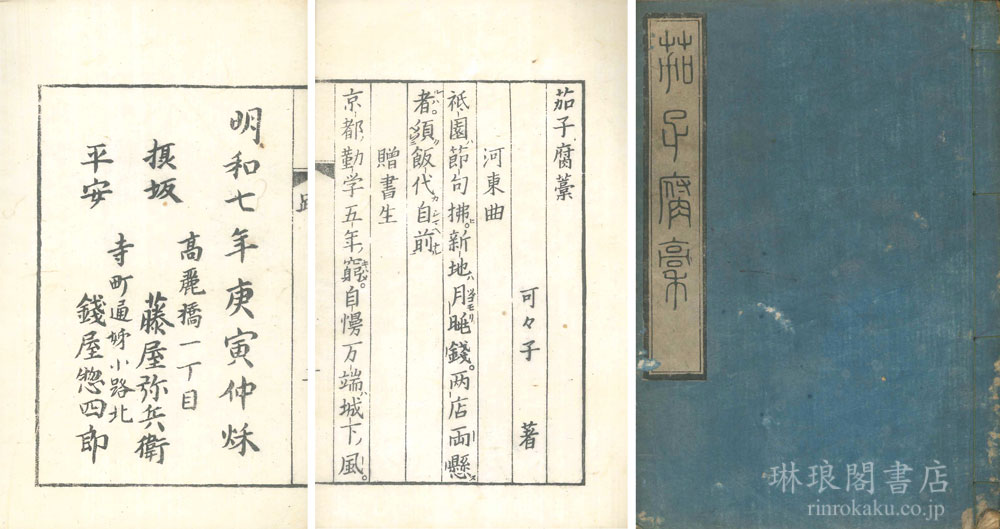 茄子腐藁
茄子腐藁
可々子 著
河東曲
祇園節句拂。新地月晦錢。両店両懸
者。須飯代自前
贈書生
京都勤学五年窮。自慢万端城下風。
明和七年庚寅仲穐
高麗橋一丁目
摂坂 藤屋弥兵衛
寺町通姊小路北
平安 錢屋惣四郎
琳琅閣書店
rinrokaku.co.jp